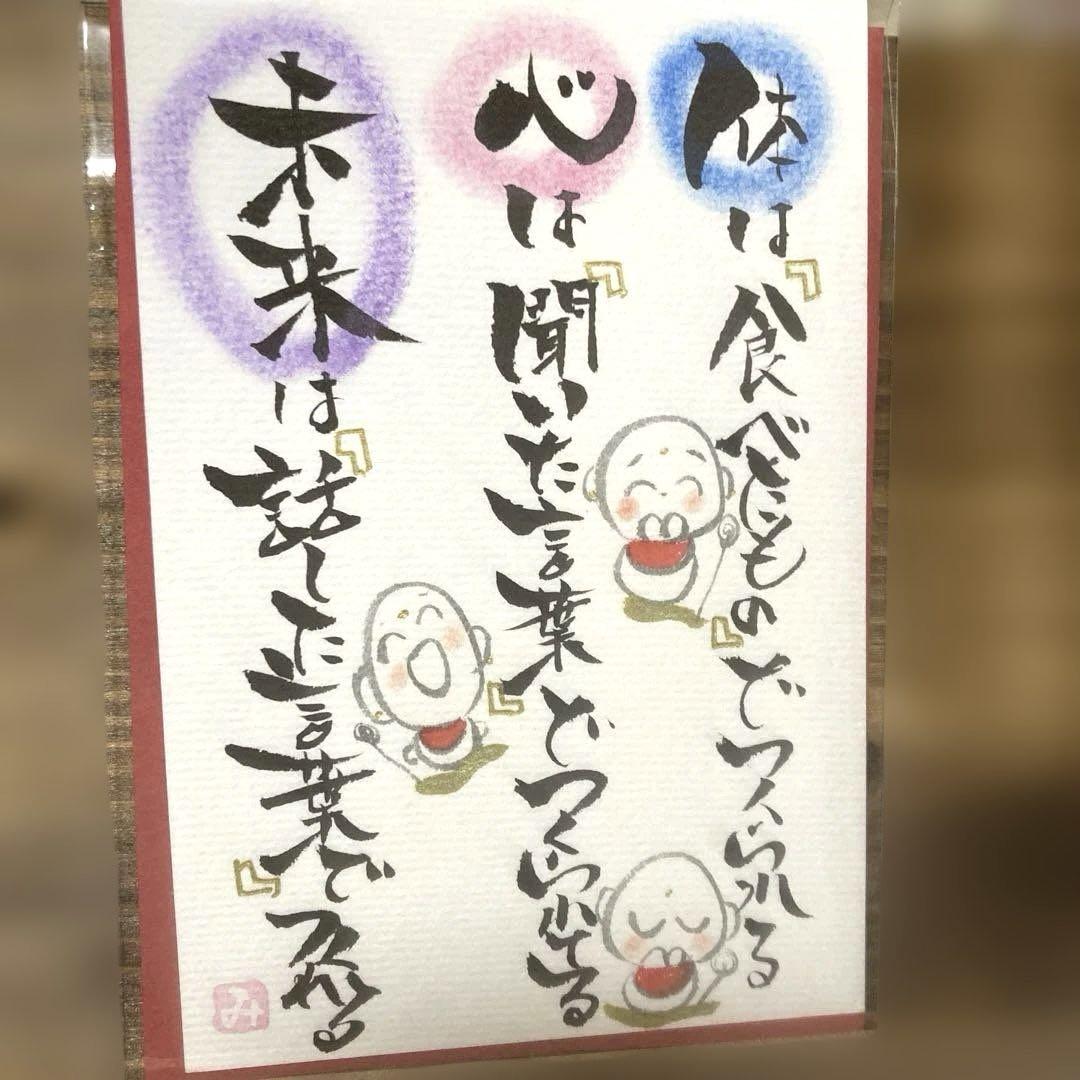 体は『食べたもの』でつくられる
心は『聞いた言葉』でつくられる
未来は『話した言葉』でつくられる
み